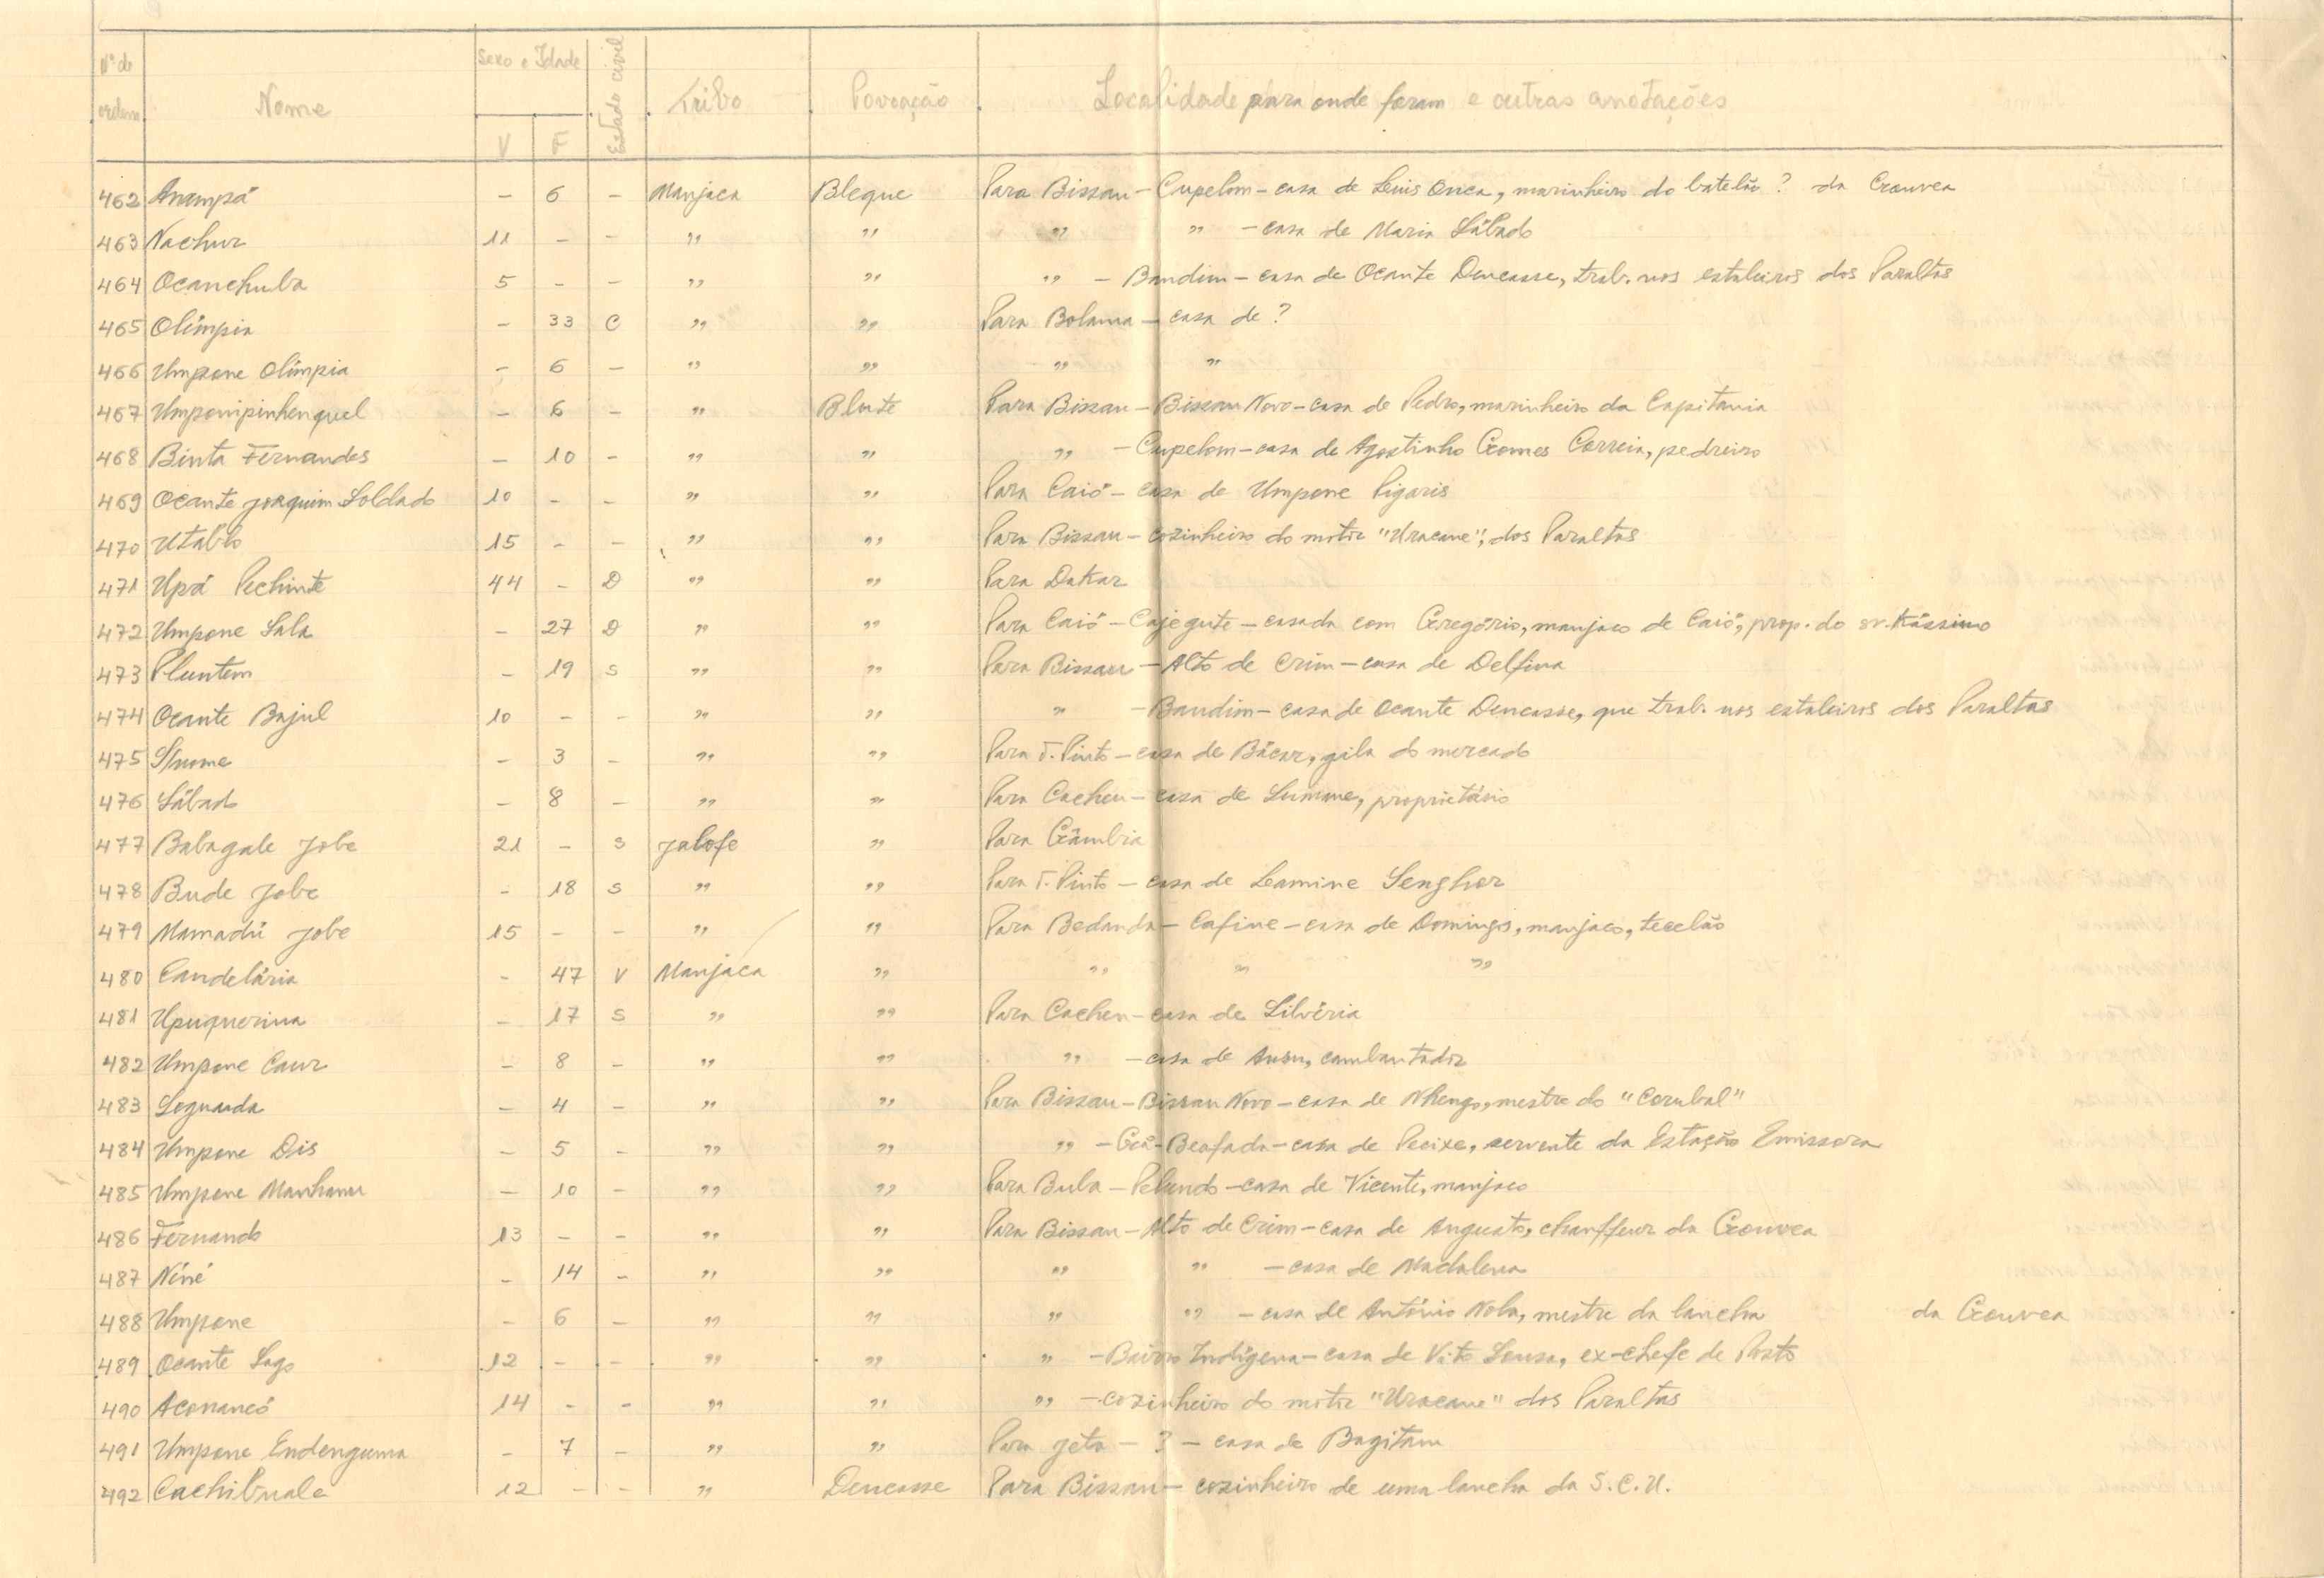 Nº de ordem Nome Sexo e Idade V F Estado civil Tribo Povoação Localidade para onde foram e outras anotações
462 Anampá - 6 - Manjaca Bleque Para Bissau - Cupelom - casa de Luis Onca, marinheiro do batelão ? da Gouvea
463 Nachur 11 - - " " " " - casa de Maria Sábado
464 Ocanchuba 5 - - " " " - Bandim - casa de Ocante Dencasse, trab. nos estaleiros dos Paraltas
465 Olímpia - 33 C " " Para Bolama - casa de ?
466 Umpone Olímpia - 6 - " " " "
467 Umponipinhenquel - 6 - " Blute Para Bissau - Bissau Novo - casa de Pedro, marinheiro da Capitania
468 Binta Fernandes - 10 - " " " - Cupelom - casa de Agostinho Gomes Correia, pedreiro
469 Ocante Joaquim Soldado 10 - - " " Para Caió - casa de Umpone Pigaris
470 Utábio 15 - - " " Para Bissau - cozinheiro do motor "Uracane", dos Paraltas
471 Upá Pechinte 44 - D " " Para Dakar
472 Umpone Sala - 27 D " " Para Caió - Cajegute - casada com Gregório, manjaco de Caió, prop. do sr. Kássimo
473 Pluntem - 19 S " " Para Bissau - Alto de Crim - casa de Delfina
474 Ocante Bajul 10 - - " " " - Bandim - casa de Ocante Dencasse, que trab. nos estaleiros dos Paraltas
475 S/nome - 3 - " " Para T. Pinto - casa de Bácar, gila do mercado
476 Sábado - 8 - " " Para Cacheu - casa de Summe, proprietário
477 Babagale Jobe 21 - S Jalofe " Para Gâmbia
478 Bude Jobe - 18 S " " Para T. Pinto - casa de Leamine Senghor
479 Mamadú Jobe 15 - - " " Para Bedanda - Cafine - casa de Domingos, manjaco, tecelão
480 Candelária - 47 V Manjaca " " " "
481 Upuquerina - 17 S " " Para Cacheu - casa de Silvéria
482 Umpone Caur - 8 - " " " - casa de Ansu, cambantador
483 Segunda - 4 - " " Para Bissau - Bissau Novo - casa de Nhengo, mestre do "Corubal"
484 Umpone Dis - 5 - " " " - Gã-Beafada - casa de Pecixe, servente da Estação Emissora
485 Umpone Manhanu - 10 - " " Para Bula - Pelundo - casa de Vicente, manjaco
486 Fernando 13 - - " " Para Bissau - Alto de Crim - casa de Augusto, chauffeur da Gouvea
487 Néné - 14 - " " " " - casa de Madalena
488 Umpone - 6 - " " " " - casa de António Nola, mestre da lancha da Gouvea
489 Ocante Sago 12 - - " " " - Bairro Indígena - casa de Vito Sousa, ex-chefe de Posto
490 Aconancó 14 - - " " " - cozinheiro do motor "Uracane" dos Paraltas
491 Umpone Endenguma - 7 - " " Para Jeta - ? - casa de Bagitam
492 Cachibuale 12 - - " Dencasse Para Bissau - cozinheiro de uma lancha da S.C.U.